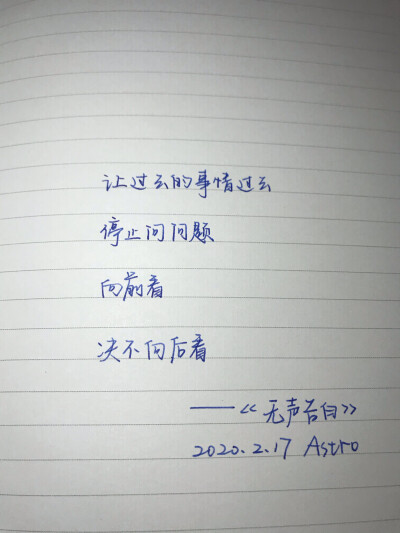 让过去的事情过去
停止问问题
向前看
决不向后看
——《无声告白》
2020.2.17 Astro